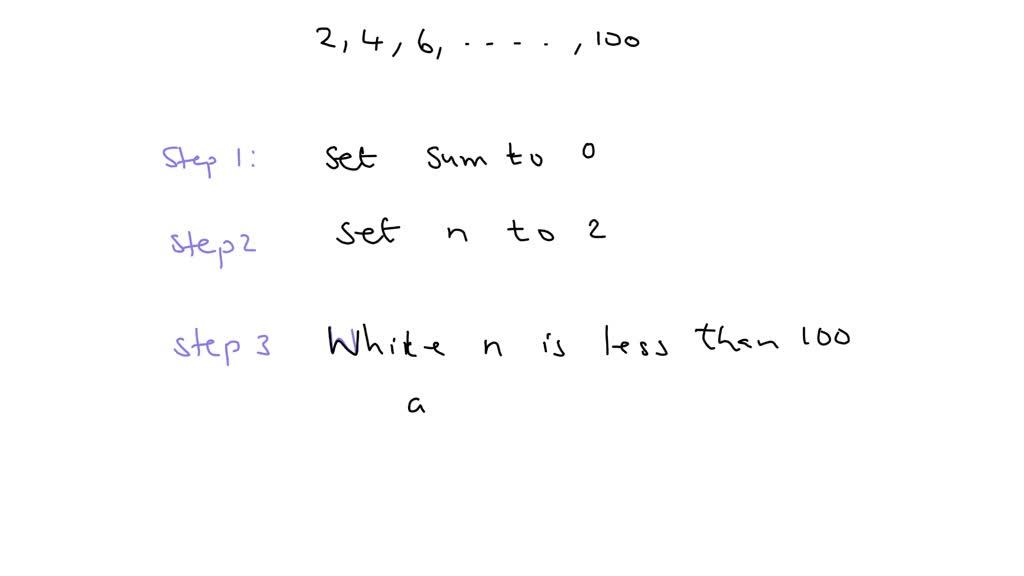 2, 4, 6, ....., 100
Step 1: set sum to 0
step 2 set n to 2
step 3 While n is less than 100
a